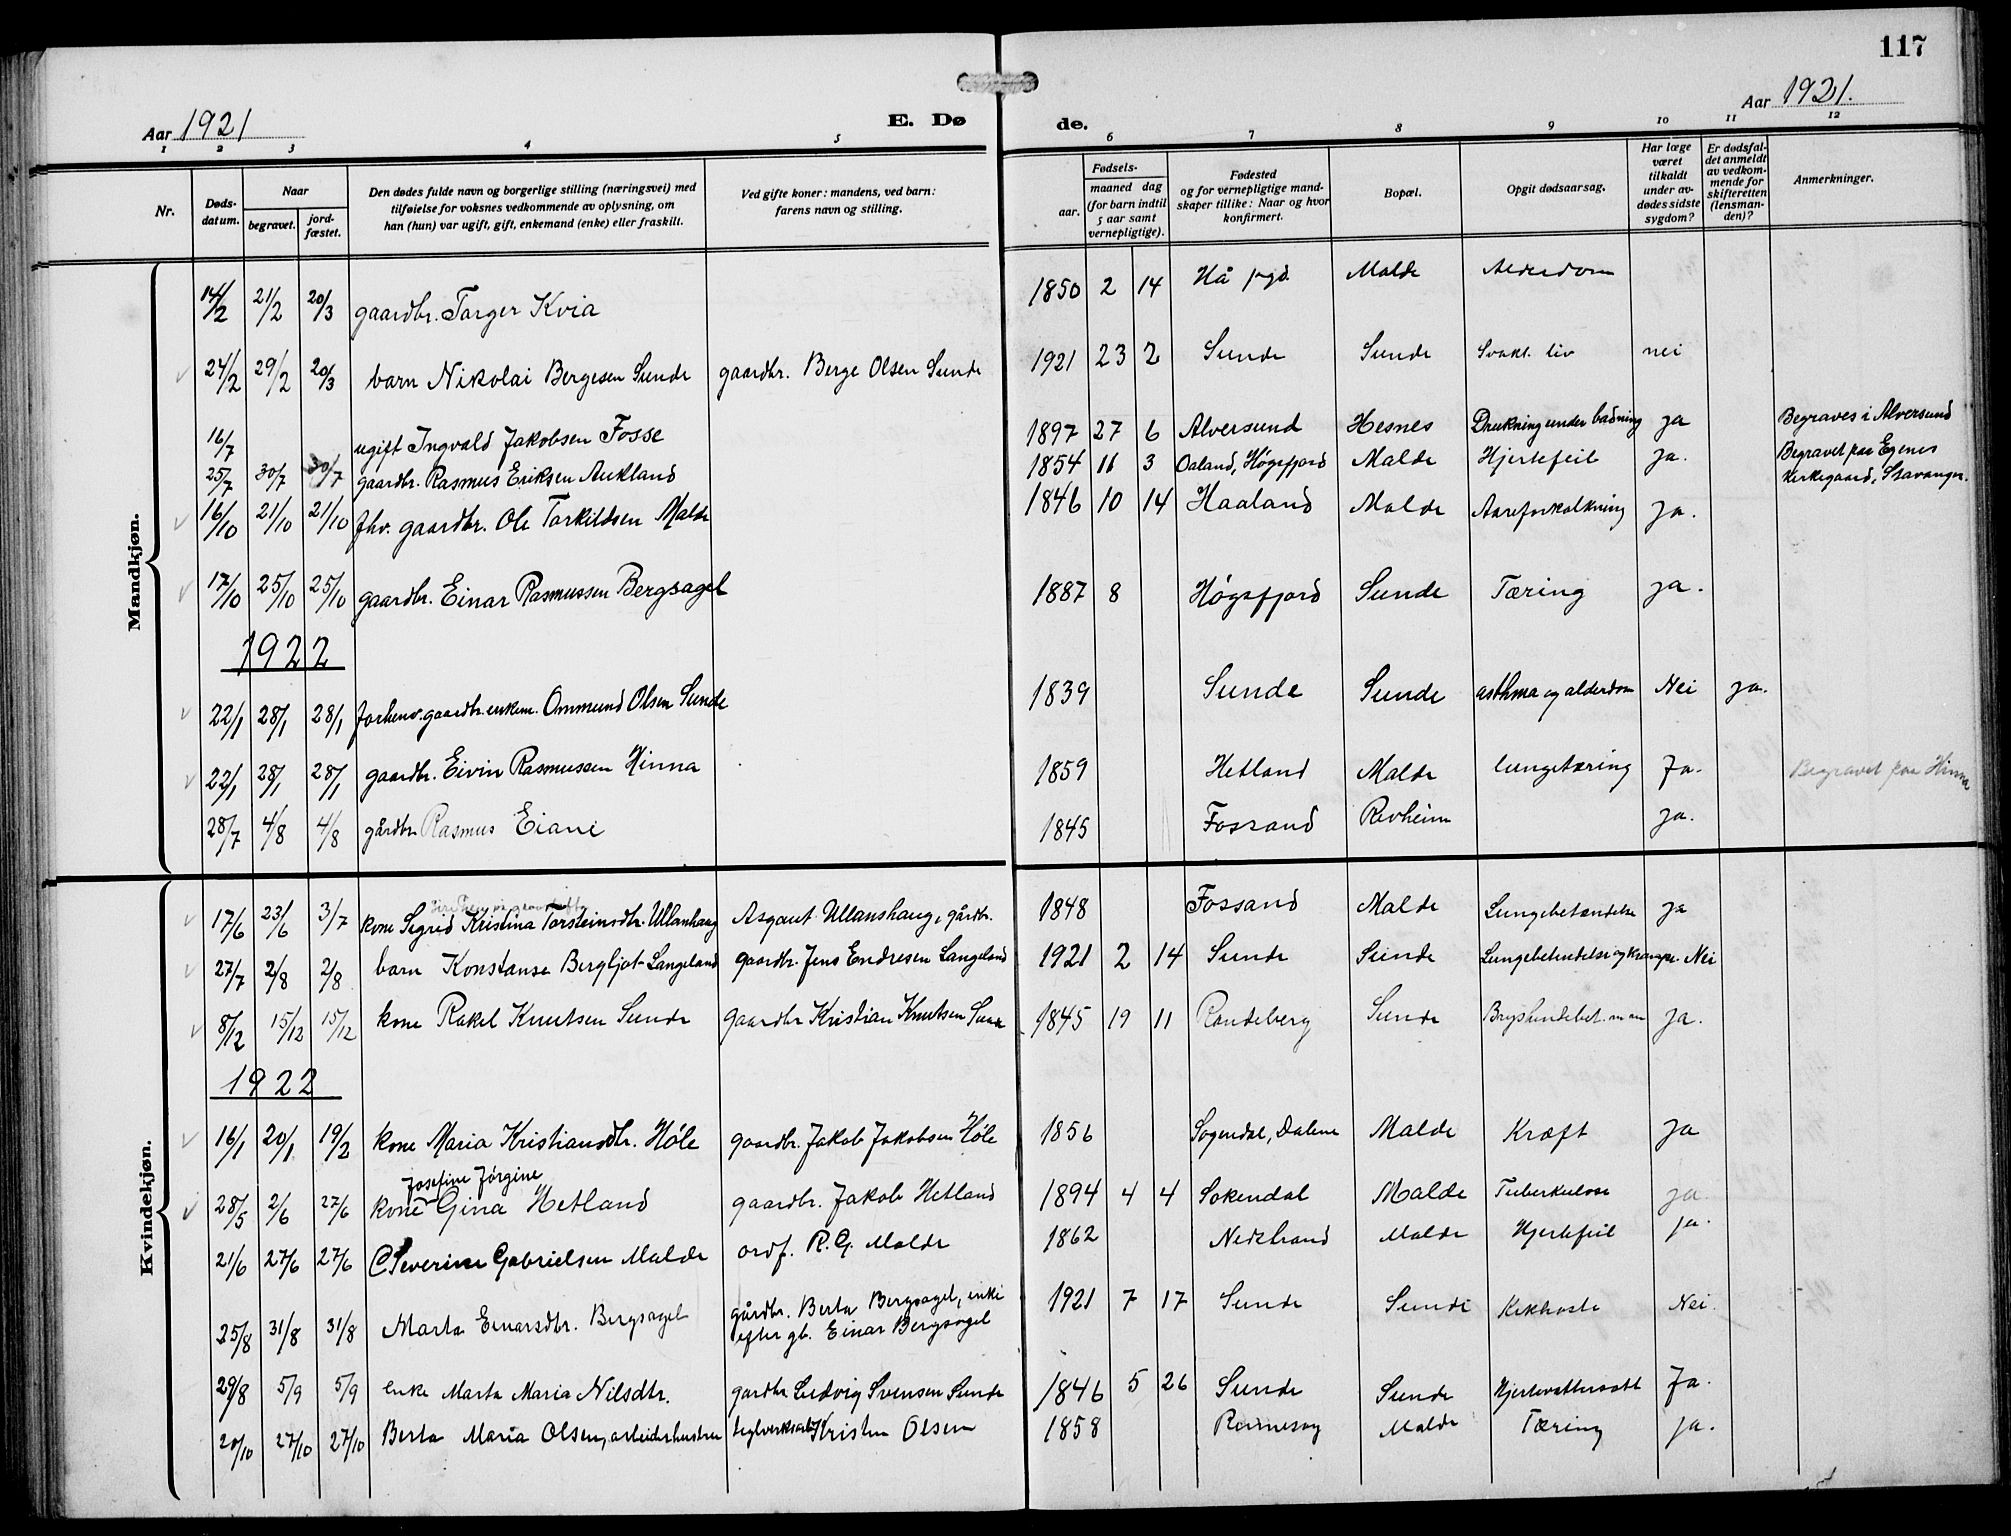 117
Aar 1921
E. Dø
de.
Aar 1921.
1 2 3 4 5 6 7 8 9 10 11 12
Nr.
Døds-datum.
Naar
begravet.
jord-fæstet.
Den dødes fulde navn og borgerlige stilling (næringsvei) med
tilføielse for voksnes vedkommende av oplysning, om
han (hun) var ugift, gift, enkemand (enke) eller fraskilt.
Ved gifte koner: mandens, ved barn:
farens navn og stilling.
Fødsels-
aar.
maaned dag
(for barn indtil
5 aar samt
vernepligtige).
Fødested
og for vernepligtige mand-
skaper tillike: Naar og hvor
konfirmert.
Bopæl.
Opgit dødsaarsag.
Har læge
været
tilkaldt
under av-
dødes sidste
sygdom?
Er dødsfal-
det anmeldt
av vedkom-
mende for
skifteretten
(lensman-
den)?
Anmerkninger.
Mandkjøn.
14/2 21/2 20/3 gaardbr. Targer Kvia 1850 2 14 Hå pgd. Malde Alderdom
24/2 29/2 20/3 barn Nikolai Bergesen Sunde gaardbr. Berge Olsen Sunde 1921 23 2 Sunde Sunde Svakt liv nei
16/7 ugift Ingvald Jakobsen Fosse 1897 27 6 Alversund Hesnes Drukning under badning ja Begraves i Alversund
25/7 30/7 30/7 gaardbr. Rasmus Eriksen Aukland 1854 11 3 Oaland, Høgsfjord Malde Hjertefeil ja. Begravet paa Egenes
Kirkegaard, Stavanger.
16/10 21/10 21/10 fhv. gaardbr. Ole Torkildsen Malde 1846 10 14 Haaland Malde Aareforkalkning ja.
17/10 25/10 25/10 gaardbr. Einar Rasmussen Bergsagel 1887 8 Høgsfjord Sunde Tæring ja.
1922
22/1 28/1 28/1 forhenv. gaardbr. enkem. Ommund Olsen Sunde 1839 Sunde Sunde asthma og alderdom Nei ja.
22/1 28/1 28/1 gaardbr. Eivin Rasmussen Hinna 1859 Hetland Malde lungetæring Ja. Begravet paa Hinna
28/7 4/8 4/8 gårdbr. Rasmus Eiane 1845 Fossand Revheim ja.
Kvindekjøn.
17/6 23/6 3/7 kone Sigrid Kristina Torsteinsdtr. Ullanhaug Asgaut Ullanshaug, gårdbr. 1848 Fossand Malde Lungebetændelse ja
27/7 2/8 2/8 barn Konstanse Bergljot Langeland gaardbr. Jens Endresen Langeland 1921 2 14 Sunde Sunde Lungebetendelse og krampe Nei
8/12 15/12 15/12 kone Rakel Knutsen Sunde gaardbr Kristian Knutsen 1845 19 11 Randeberg Sunde ja.
1922
16/1 20/1 19/2 kone Maria Kristiansdtr. Høle gaardbr. Jakob Jakobsen Høle 1856 Sogendal, Dalene Malde Kræft ja
Josefine Jørgine
28/5 2/6 27/6 kone Gina Hetland gaardbr. Jakob Hetland 1894 4 4 Sokendal Malde Tuberkulose ja.
21/6 27/6 27/6 Severine Gabrielsen Malde ordf. R. G. Malde 1862 Nedstrand Malde Hjertefeil ja.
25/8 31/8 31/8 Marta Einarsdtr. Bergsagel gårdbr. Berta Bergsagel, enke
efter gb. Einar Bergsagel 1921 7 17 Sunde Sunde Kikhoste Nei.
29/8 5/9 5/9 enke Marta Maria Nilsdtr. gardbr Ludvig Svensen Sunde 1846 5 26 Sunde Sunde Hjertevattersott Ja.
20/10 27/10 27/10 Berta Maria Olsen, arbeiderhustru Kristen Olsen 1858 Rennesøy Malde Tæring ja.